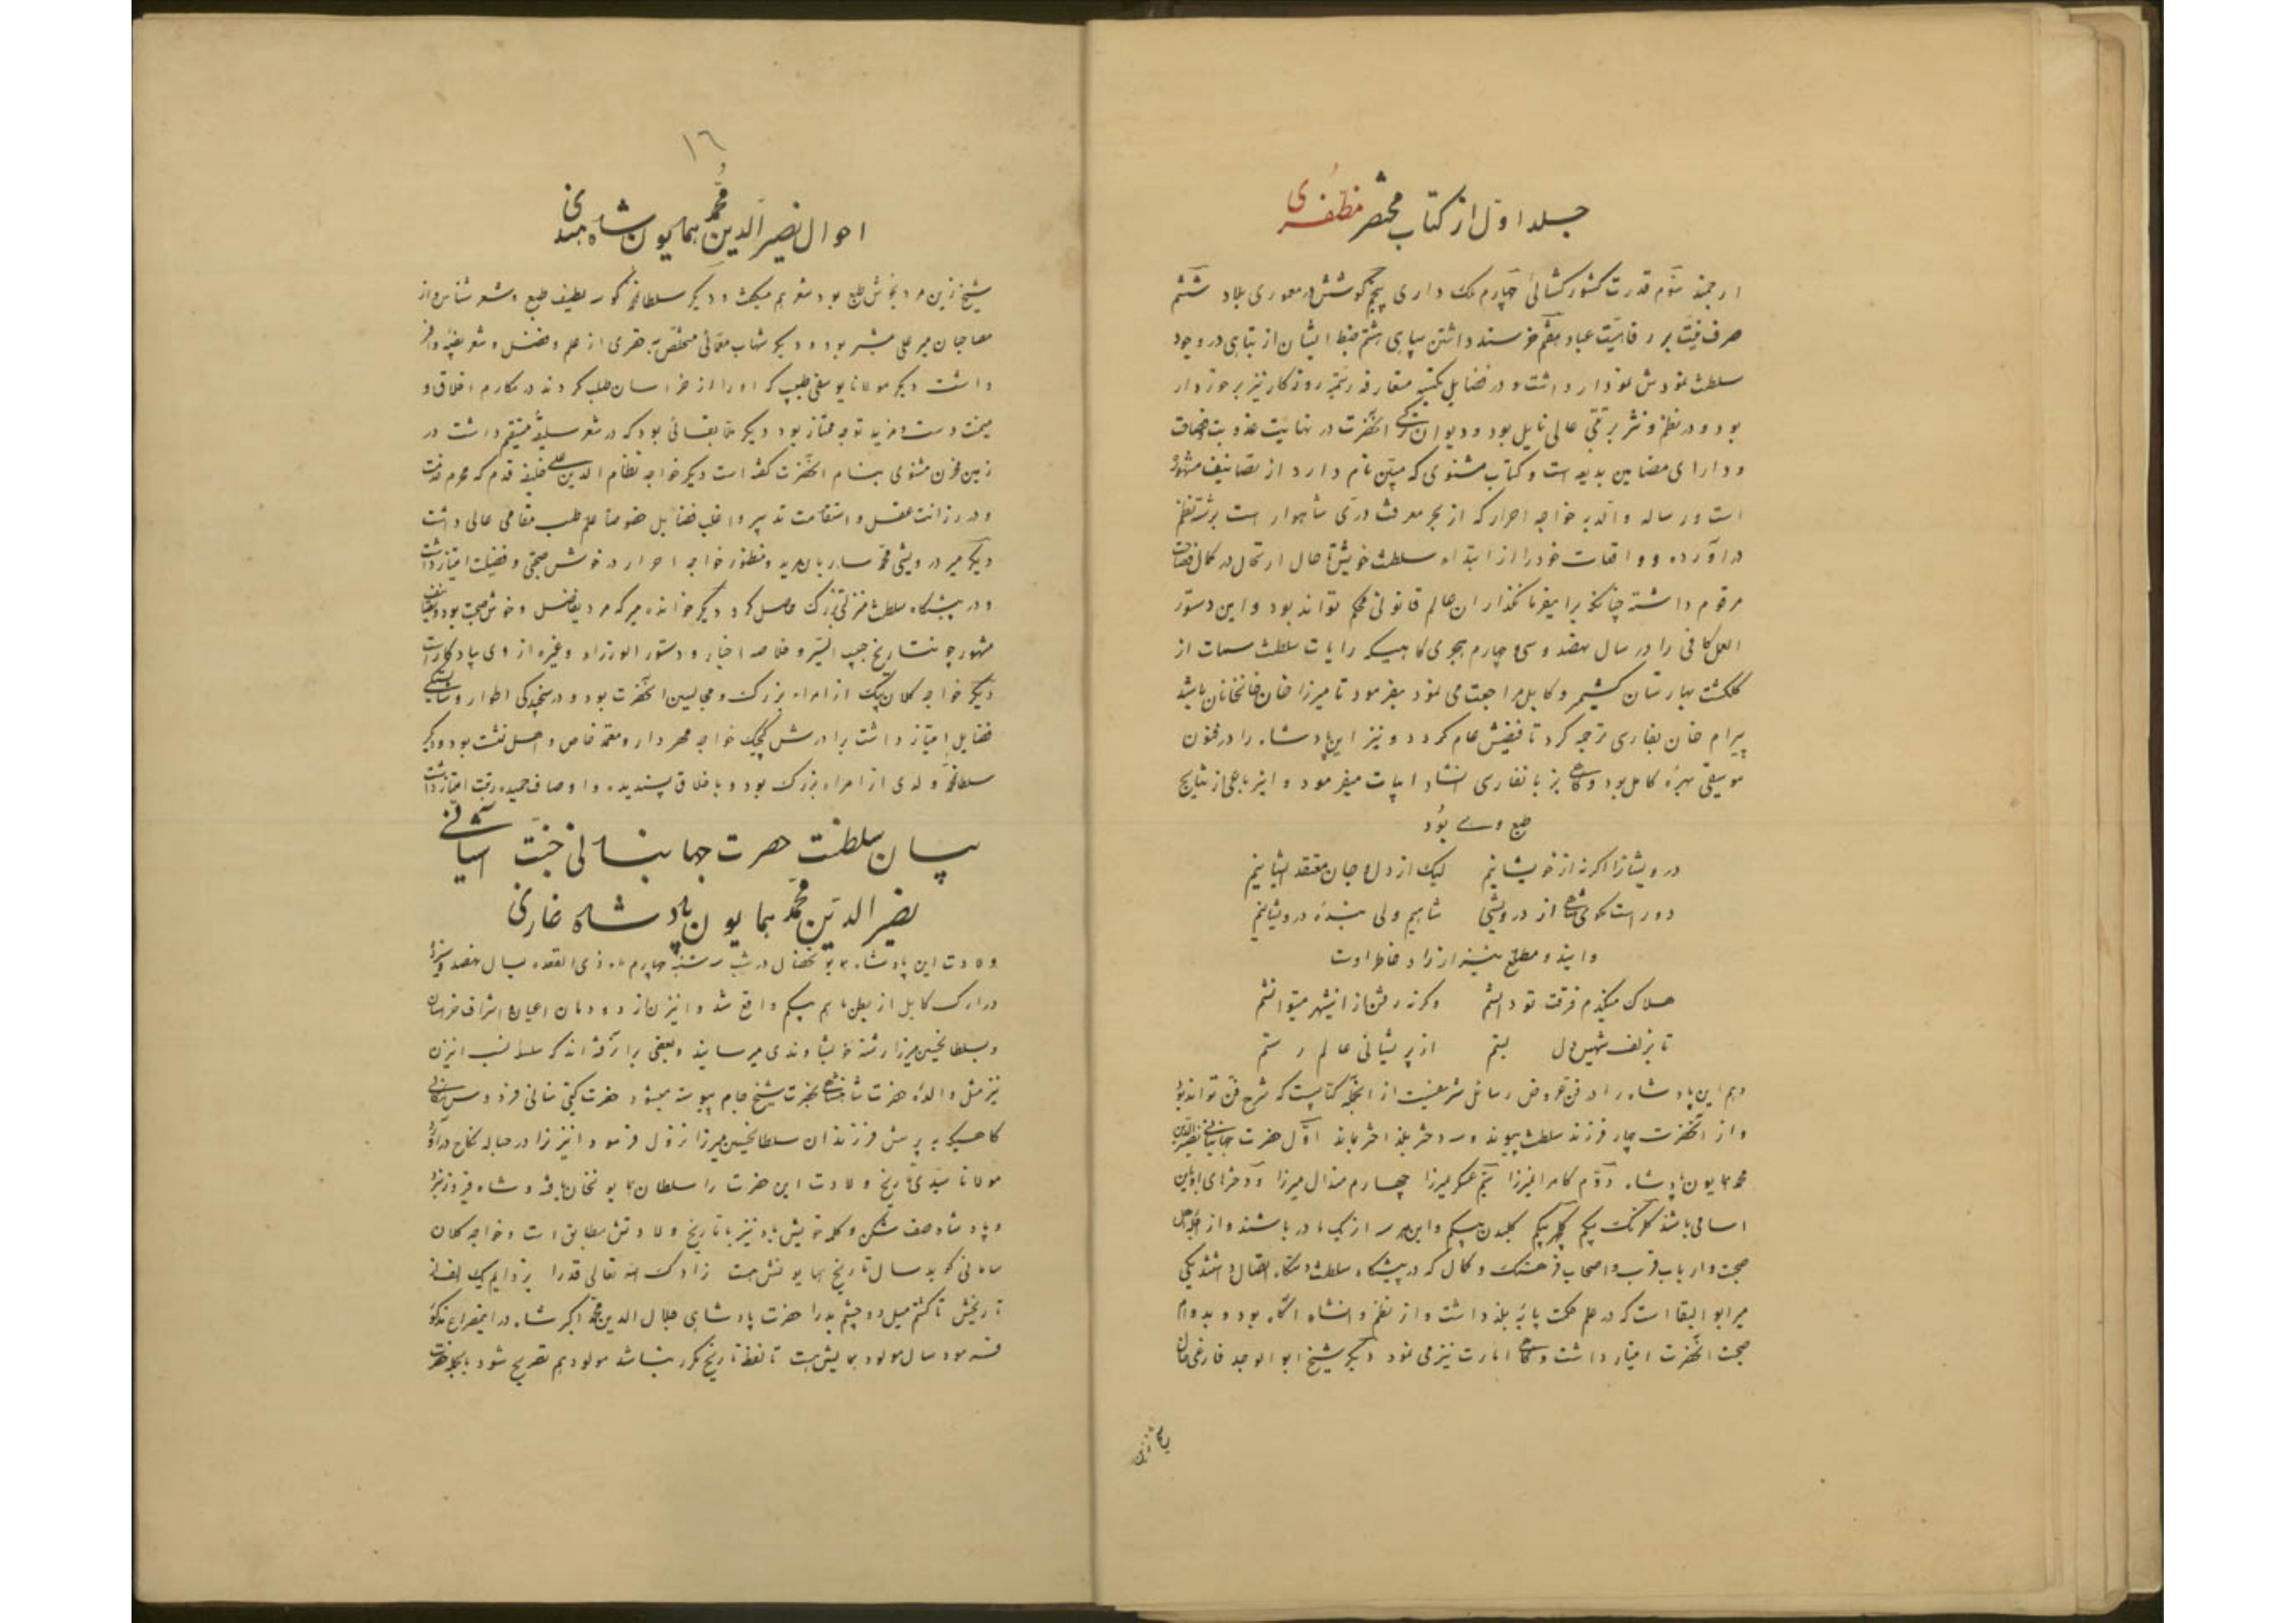 جلد اول از کتاب مختصر مظفری
ارجمند سوم قدرت کشور کشائی چهارم ملک داری پنجم کوشش در معموری بلاد ششم
صرف نیت بر رفاهیت عباد هفتم خرسند داشتن سپاهی هشتم ضبط ایشان از تباهی در وجود
سلطنت نمودش نمودار داشت و در فضایل مکتسبه متعارفه رسمیه روزکار نیز برخوردار
بود و در نظم و نثر برتبه عالی نایل بود و دیوان ترکی آنحضرت در نهایت عذوبت
و دارای مضامین بدیعه است و کتاب مثنوی که مبین نام دارد از تصانیف مشهوره
است و رساله والدیه خواجه احرار که از بحر معرفت دری شاهوار است برشته نظم
دراورده و واقعات خود را از ابتداء سلطنت خویش تا حال ارتحال در کمال فصاحت
مرقوم داشته چنانکه برای فرمانکذاران عالم قانونی محکم تواند بود و این دستور
العمل کافی را در سال نهصد و سی و چهارم هجری کاهیکه رایات سلطنت سمات از
کلکشت بهارستان کشمیر و کابل مراجعت می نمود بفرمود تا میرزا خان خانخانان باشد
بیرام خان بفارسی ترجمه کرد تا فیضش عام کردد و نیز این پادشاه را در فنون
موسیقی بهرهٔ کامل بود و کاهی بزبان فارسی انشاد ابیات میفرمود و این رباعی از نتایج
طبع وے بود
درویشانرا اکر نه از خویشانیم لیک از دل و جان معتقد ایشانیم
دور است مکوی شاهی از درویشی شاهیم ولی بندهٔ درویشانیم
و ایندو مطلع نیز از زاد خاطر اوست
هلاک میکندم فرقت تو دانستم وکرنه رفتن از اینشهر میتوانستم
تا بزلف سیهش دل بستم از پریشانی عالم رستم
و هم این پادشاه را در فن عروض رسائل شریفیست از آنجمله کتابیست که شرح فن تواند بود
و از آنحضرت چهار فرزند سلطنت پیوند و سه دختر بلند اختر بماند اول حضرت جهانبانی نصیرالدین
محمد همایون پادشاه دوم کامران میرزا سیم عسکر میرزا چهارم هندال میرزا و دخترهای باین
اسامی باشند کلرنک بیکم کلچهره بیکم کلبدن بیکم و این هر سه از یک مادر باشند و از جمله اهل
صحبت و ارباب قرب و اصحاب فرهنک و کمال که در پیشکاه سلطنت دستکاه اتصال داشتند یکی
میر ابو البقا است که در علم حکمت پایه بلند داشت و از نظم و انشاء آکاه بود و بدوام
صحبت آنحضرت امتیاز داشت و کاهی امارت نیز می نمود دیکر شیخ ابو الوجد فارغی
١٦
احوال نصیر الدین محمد همایون شاه هندی
شیخ زین مرد خوش طبع بود شعر هم میکفت و دیکر سلطان محمد کوسه لطیف طبع و شعر شناس و از
مصاحبان میر علی شیر بود و دیکر شهاب معمائی متخلص به حقیری از علم و فضل و شعر نصیبه وافر
داشت دیکر مولانا یوسفی طبیب که او را از خراسان طلب کردند در مکارم اخلاق و
میمنت دست و مزید توجه ممتاز بود دیکر ملا بقائی بود که در شعر سلیقه مستقیم داشت در
زمین مخزن مثنوی بنام آنحضرت کفته است دیکر خواجه نظام الدین علی خلیفه قدم که محرم خدمت
و در رزانت عقل و استقامت تدبیر و اغلب فضایل خصوصا علم طب مقامی عالی داشت
دیکر میر درویش محمد ساربان مرید و منظور خواجه احرار در خوش صحبتی و فضیلت امتیاز داشت
و در پیشکاه سلطنت منزلتی بزرک حاصل کرد دیکر خوانده میر که مرد بفضل و خوش صحبت بود و تصانیف
مشهور چون تاریخ حبیب السیر و خلاصه اخبار و دستور الوزراء و غیره از وی یادکار است
دیکر خواجه کلان بیک از امراء بزرک و مجالسین آنحضرت بود و در سنجیدکی اطوار و شایستکی
فضایل امتیاز داشت برادرش کیچک خواجه مهردار و معتمد خاص و اهل نشست بود و دیکر
سلطان محمد ولدی از امراء بزرک بود و باخلاق پسندیده و اوصاف حمیده رقت امتیاز داشت
بیان سلطنت حضرت جهانبانی جنت آشیانی
نصیر الدین محمد همایون پادشاه غازی
ولادت این پادشاه همایون خصال در شب سه شنبه چهارم ماه ذی القعده سال نهصد و سیزده
در ارک کابل از بطن ماهم بیکم واقع شد و اینزن از دودمان اعیان و اشراف خراسان
و بسلطان حسین میرزا رشته خویشاوندی میرسانید و بعضی برآن رفته اند که سلسله نسب اینزن
نیز مثل والده حضرت شاهنشاهی بحضرت شیخ جام پیوسته میشود حضرت کیتی ستانی فردوس مکانی
کاهیکه به پرسش فرزندان سلطان حسین میرزا نزول فرمود اینزن را در حباله نکاح درآورد
مولانا سیدی تاریخ ولادت این حضرت را سلطان همایون خان یافته و شاه فیروز قدر
و پادشاه صف شکن و کلمه خویش باد نیز با تاریخ ولادتش مطابق است و خواجه کلان
سامانی کوید سال تاریخ همایونش هست زادک الله تعالی قدرا بردم یک الف از
تاریخش تا کشم میل دو چشم بد را حضرت پادشاهی جلال الدین محمد اکبر شاه در این مصراع مذکور
فرمود سال مولود همایش هست تا لفظ تاریخ مکرر نباشد مولود هم تصریح شود بالجمله حضرت